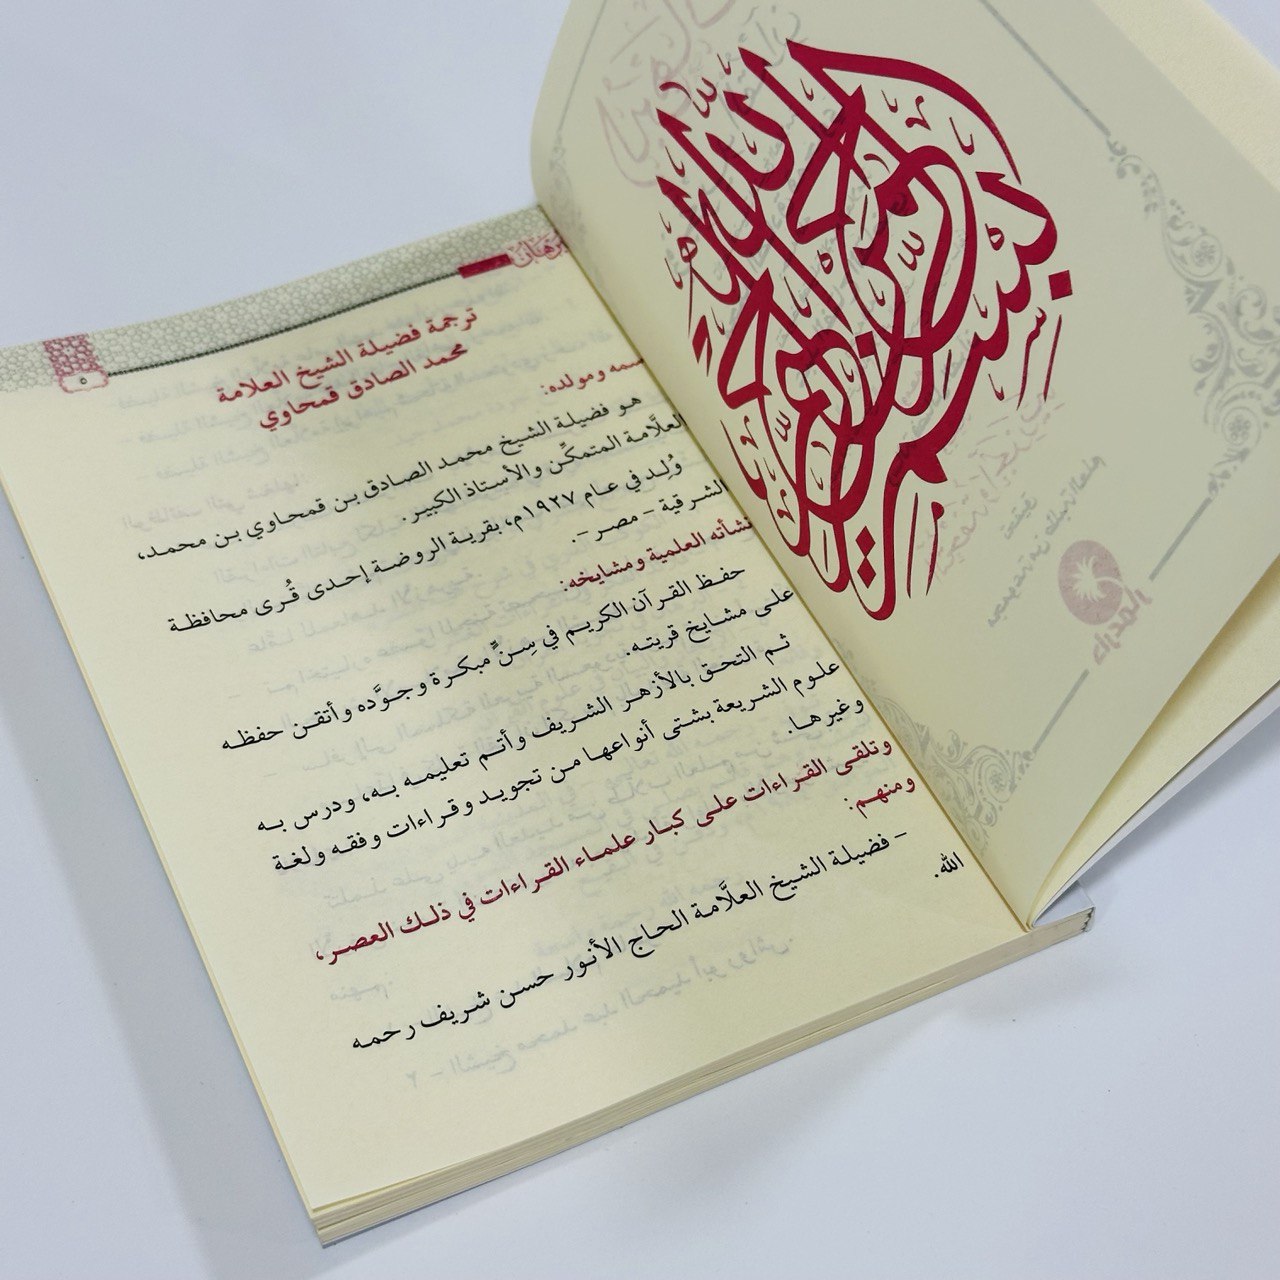 بسم الله الرحمن الرحيم
٥
ترجمة فضيلة الشيخ العلامة
محمد الصادق قمحاوي
سمه ومولده:
هو فضيلة الشيخ محمد الصادق بن قمحاوي بن محمد،
العلَّامة المتمكِّن والأستاذ الكبير.
وُلِد في عام ١٩٢٧م، بقرية الروضة إحدى قُرى محافظة
الشرقية – مصر –.
نشأته العلمية ومشايخه:
حفظ القرآن الكريم في سِنٍّ مبكرة وجوَّده وأتقن حفظه
على مشايخ قريته.
ثم التحق بالأزهر الشريف وأتم تعليمه به، ودرس به
علوم الشريعة بشتى أنواعها من تجويد وقراءات وفقه ولغة
وغيرها.
وتلقى القراءات على كبار علماء القراءات في ذلك العصر،
ومنهم:
– فضيلة الشيخ العلَّامة الحاج الأنور حسن شريف رحمه
الله.